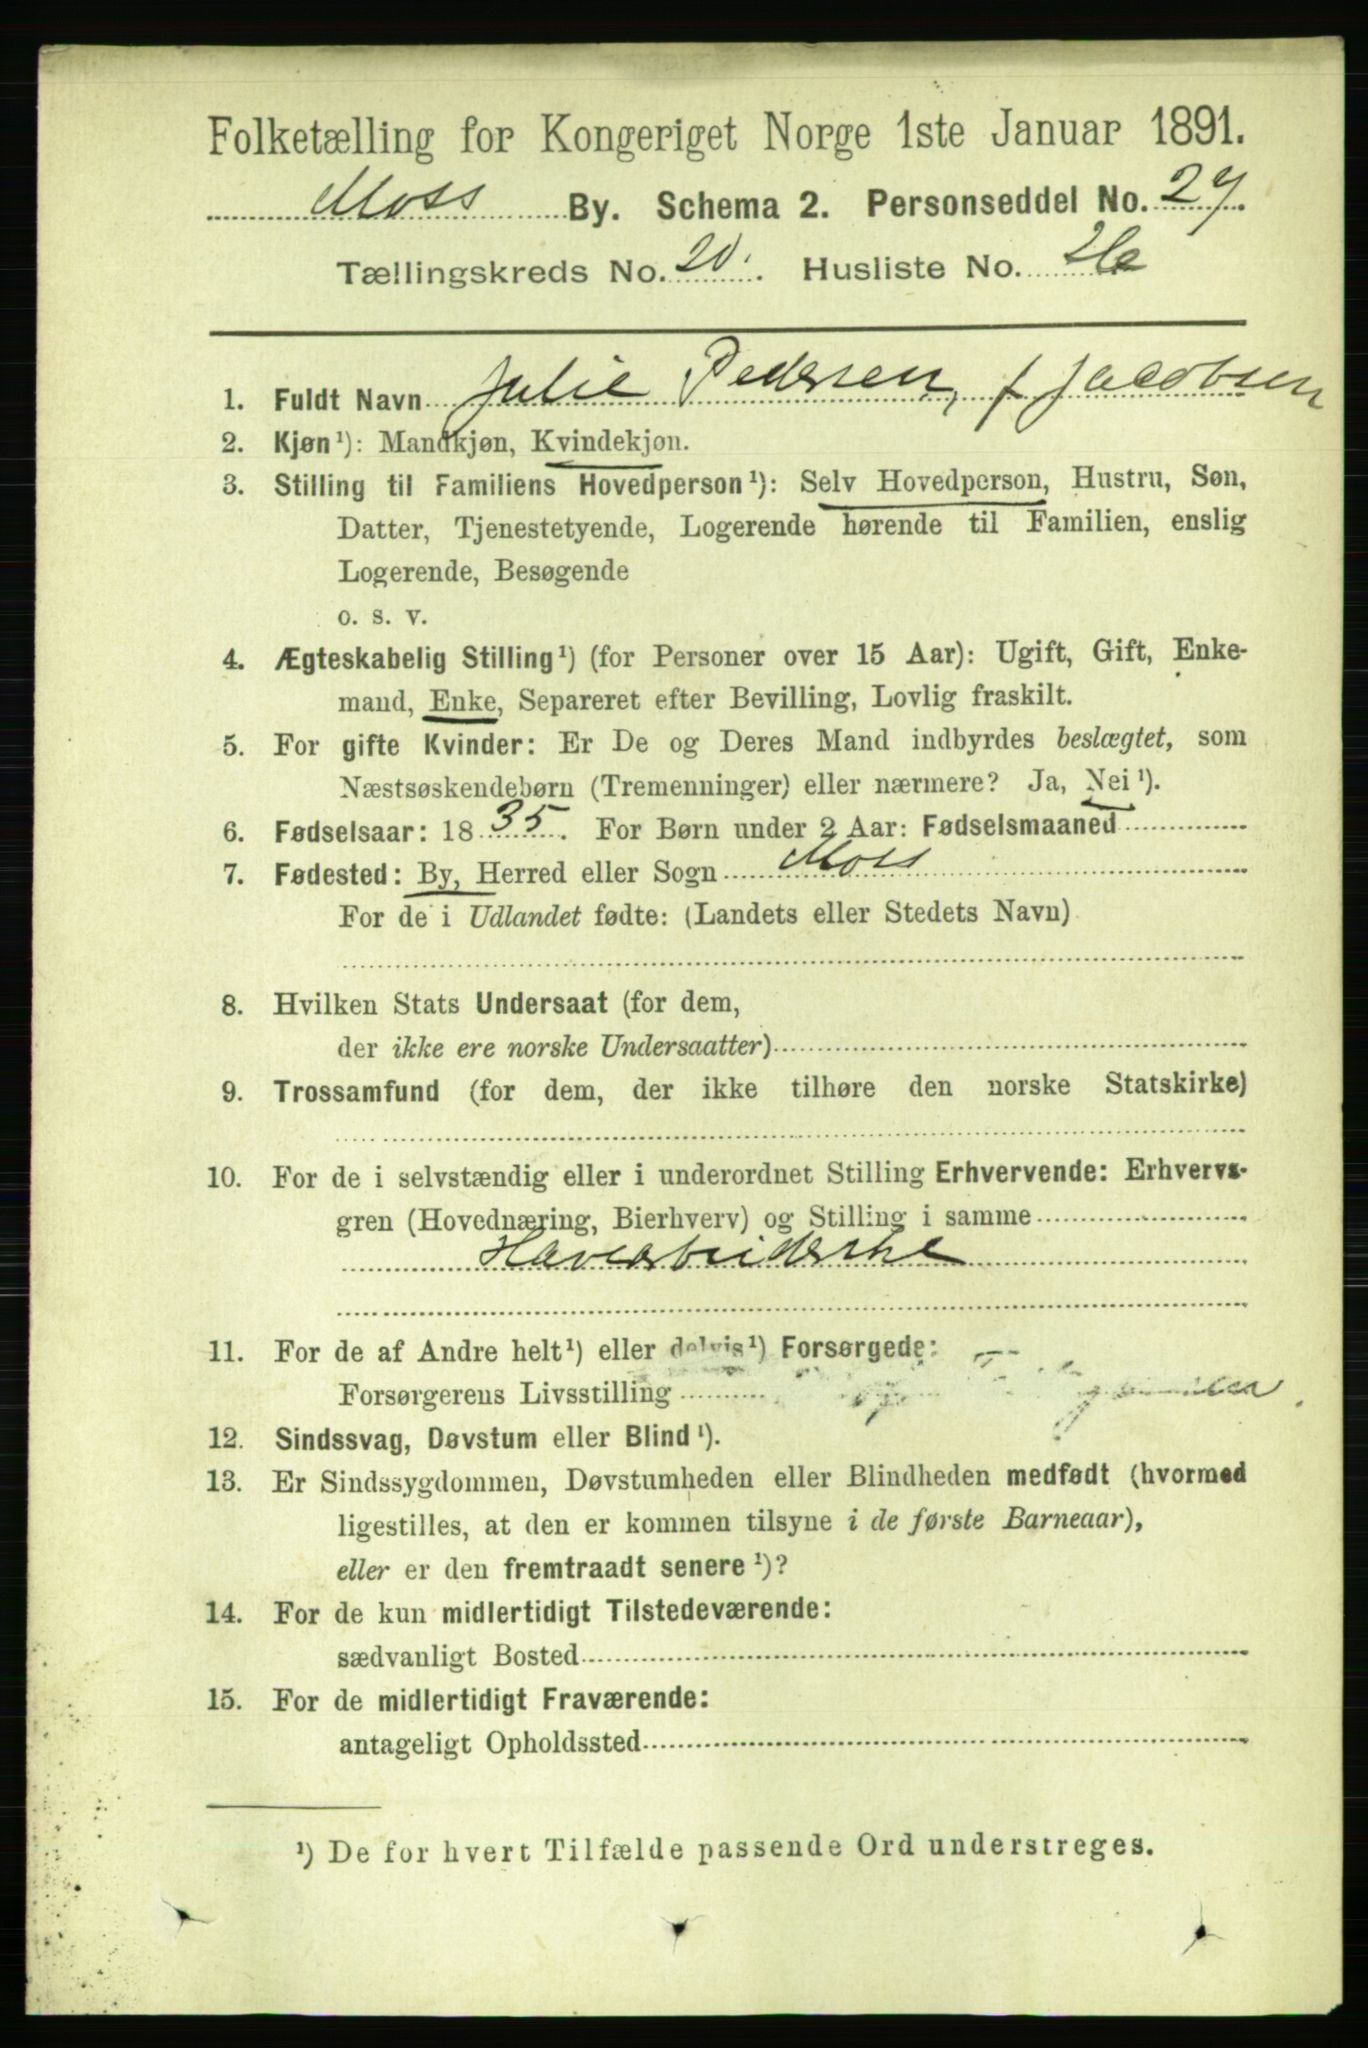 Folketælling for Kongeriget Norge 1ste Januar 1891.
Moss By. Schema 2. Personseddel No. 27.
Tællingskreds No. 20. Husliste No.
1. Fuldt Navn Julie Pedersen, f Jacobsen
2. Kjøn¹): Mandkjøn, Kvindekjøn.
3. Stilling til Familiens Hovedperson¹): Selv Hovedperson, Hustru, Søn,
Datter, Tjenestetyende, Logerende hørende til Familien, enslig
Logerende, Besøgende
o. s. v.
4. Ægteskabelig Stilling¹) (for Personer over 15 Aar): Ugift, Gift, Enke-
mand, Enke, Separeret efter Bevilling, Lovlig fraskilt.
5. For gifte Kvinder: Er De og Deres Mand indbyrdes beslægtet, som
Næstsøskendebørn (Tremenninger) eller nærmere? Ja, Nei¹).
6. Fødselsaar: 1835. For Børn under 2 Aar: Fødselsmaaned
7. Fødested: By, Herred eller Sogn Moss
For de i Udlandet fødte: (Landets eller Stedets Navn)
8. Hvilken Stats Undersaat (for dem,
der ikke ere norske Undersaatter)
9. Trossamfund (for dem, der ikke tilhøre den norske Statskirke)
10. For de i selvstændig eller i underordnet Stilling Erhvervende: Erhvervs-
gren (Hovednæring, Bierhverv) og Stilling i samme
Havearbeiderske
11. For de af Andre helt¹) eller delvis¹) Forsørgede:
Forsørgerens Livsstilling
12. Sindssvag, Døvstum eller Blind¹).
13. Er Sindssygdommen, Døvstumheden eller Blindheden medfødt (hvormed
ligestilles, at den er kommen tilsyne i de første Barneaar),
eller er den fremtraadt senere¹)?
14. For de kun midlertidigt Tilstedeværende:
sædvanligt Bosted
15. For de midlertidigt Fraværende:
antageligt Opholdssted
¹) De for hvert Tilfælde passende Ord understreges.